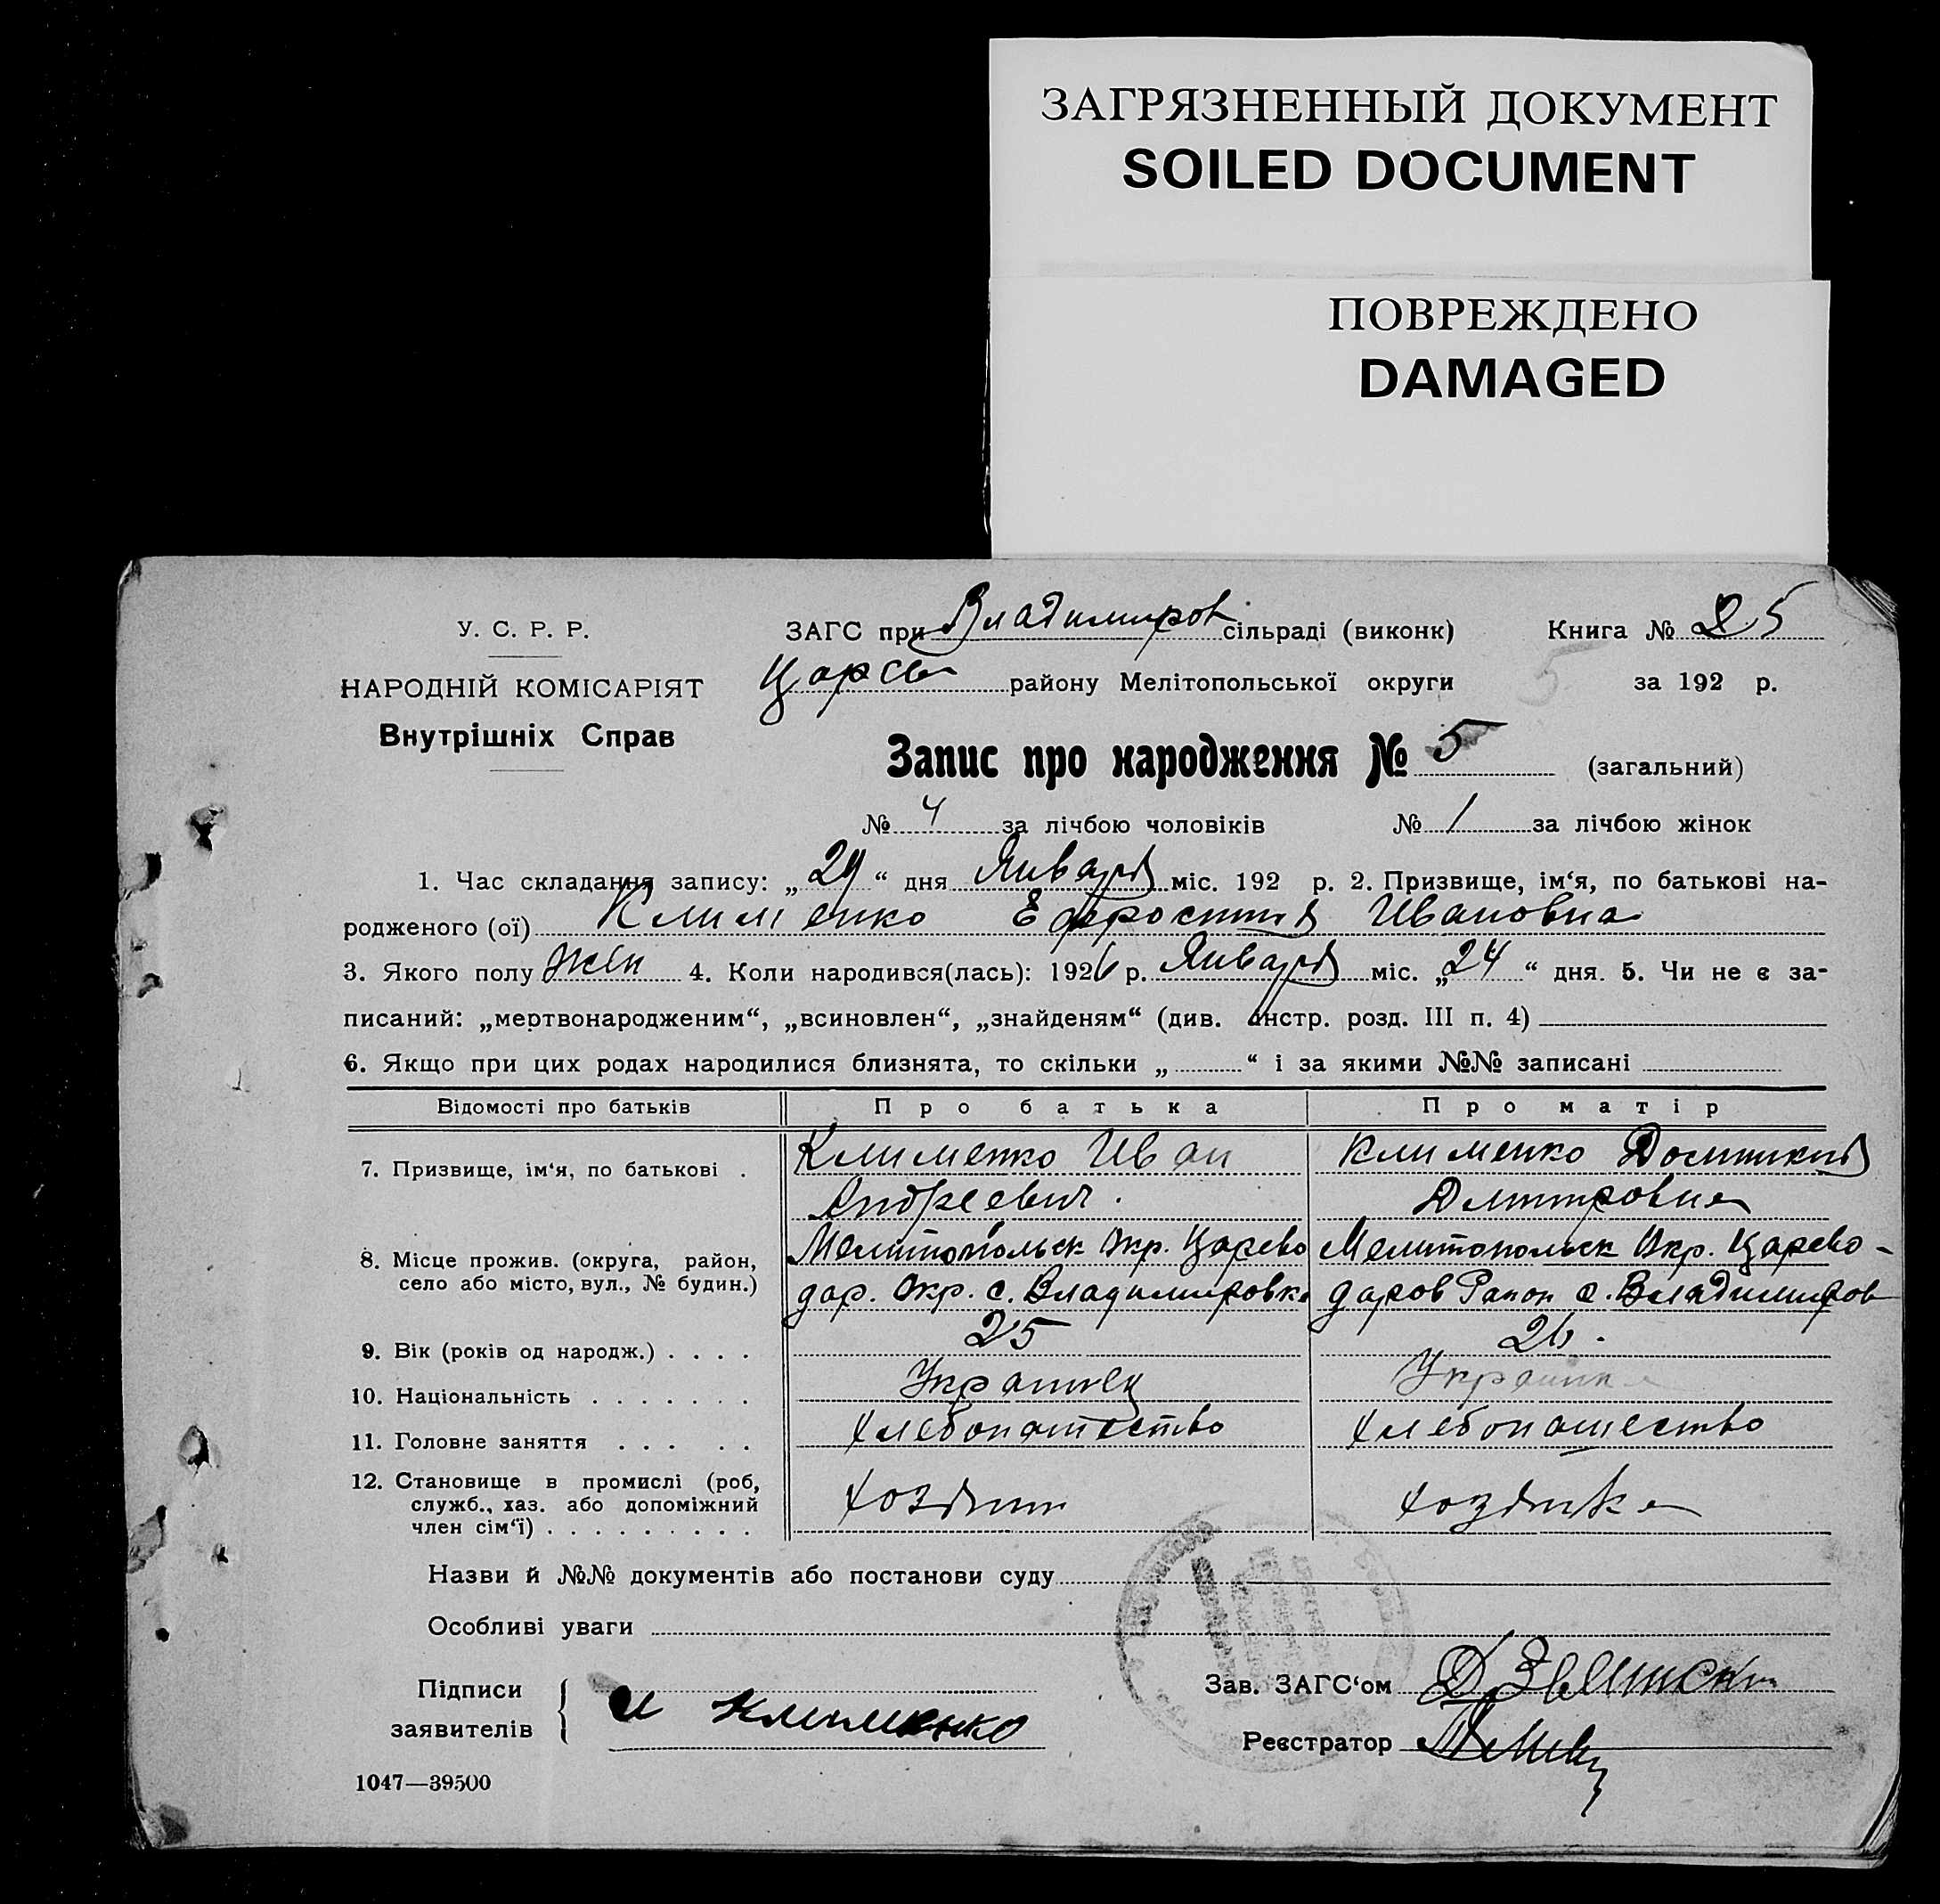 ЗАГРЯЗНЕННЫЙ ДОКУМЕНТ
SOILED DOCUMENT
ПОВРЕЖДЕНО
DAMAGED
У. С. Р. Р.
НАРОДНІЙ КОМІСАРІЯТ
Внутрішніх Справ
ЗАГС при Владимиров сільраді (виконк)
Книга № 25
Царев району Мелітопольської округи
за 192 р.
Запис про народження № 5 (загальний)
№ 4 за лічбою чоловіків № 1 за лічбою жінок
1. Час складання запису: „29“ дня Января міс. 192 р. 2. Призвище, ім‘я, по батькові на-
родженого (ої) Клименко Ефросиния Ивановна
3. Якого полу жен 4. Коли народився(лась): 1926 р. Января міс. „24“ дня. 5. Чи не є за-
писаний: „мертвонародженим“, „всиновлен“, „знайденям“ (див. інстр. розд. III п. 4)
6. Якщо при цих родах народилися близнята, то скільки „ “ і за якими №№ записані
Відомості про батьків Про батька Про матір
7. Призвище, ім‘я, по батькові . Клименко Иван Клименко Домникия
Андреевич. Дмитровна
8. Місце прожив. (округа, район, Мелитопольск Окр. Царево Мелитопольск Окр. Царево-
село або місто, вул., № будин.) дар. Окр. с. Владимировка даров Раион с. Владимиров
9. Вік (років од народж.) . . . . 25 26.
10. Національність . . . . . . . Украинец Украинка
11. Головне заняття . . . . . хлебопашество хлебопашество
12. Становище в промислі (роб,
служб., хаз. або допоміжний хозяин хозяйка
член сім‘ї) . . . . . . . . .
Назви й №№ документів або постанови суду
Особливі уваги
Підписи
заявителів
И Клименко
Зав. ЗАГС‘ом
Реєстратор
1047—39500